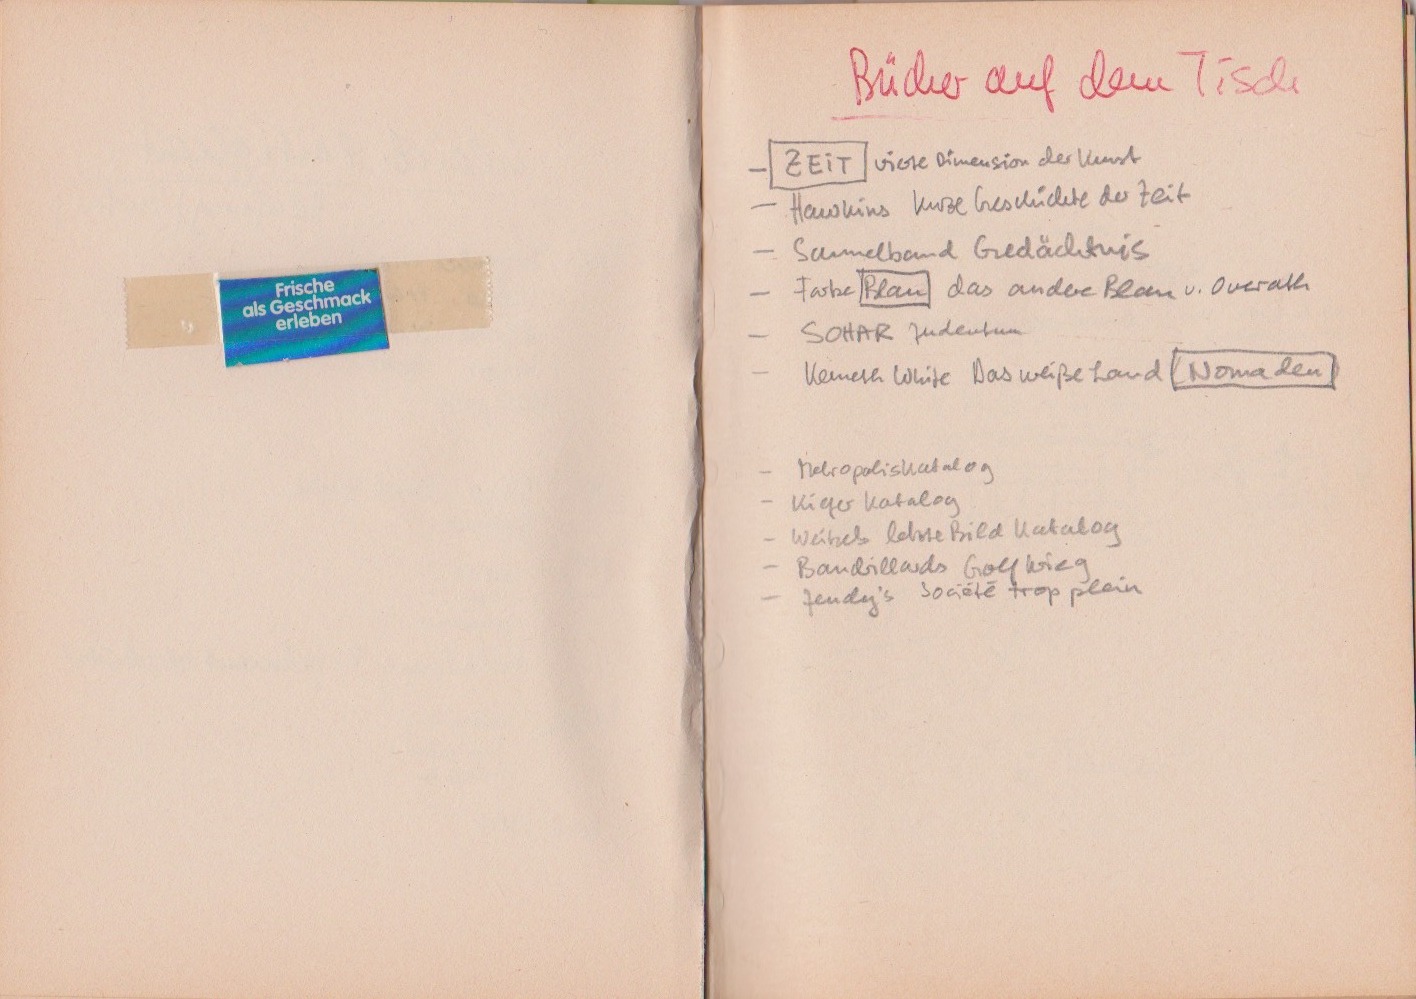 Frische
als Geschmack
erleben
Bücher auf dem Tisch
- ZEiT vierte Dimension der Kunst
- Hawkins kurze Geschichte der Zeit
- Sammelband Gedächtnis
- Farbe Blau das andere Blau v. Overath
- SOHAR Judentum
- Kenneth White Das weiße Land Nomaden
- Metropoliskatalog
- Kiefer Katalog
- letzte Bild Katalog
- Baudrillards Golfkrieg
- Jeudy's Société trop plein